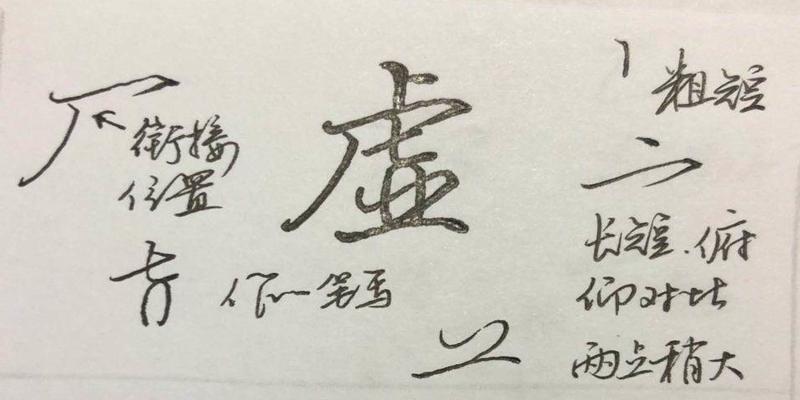 衔接
位置
虚
作一笔写
粗短
长短.俯
仰对比
两点稍大